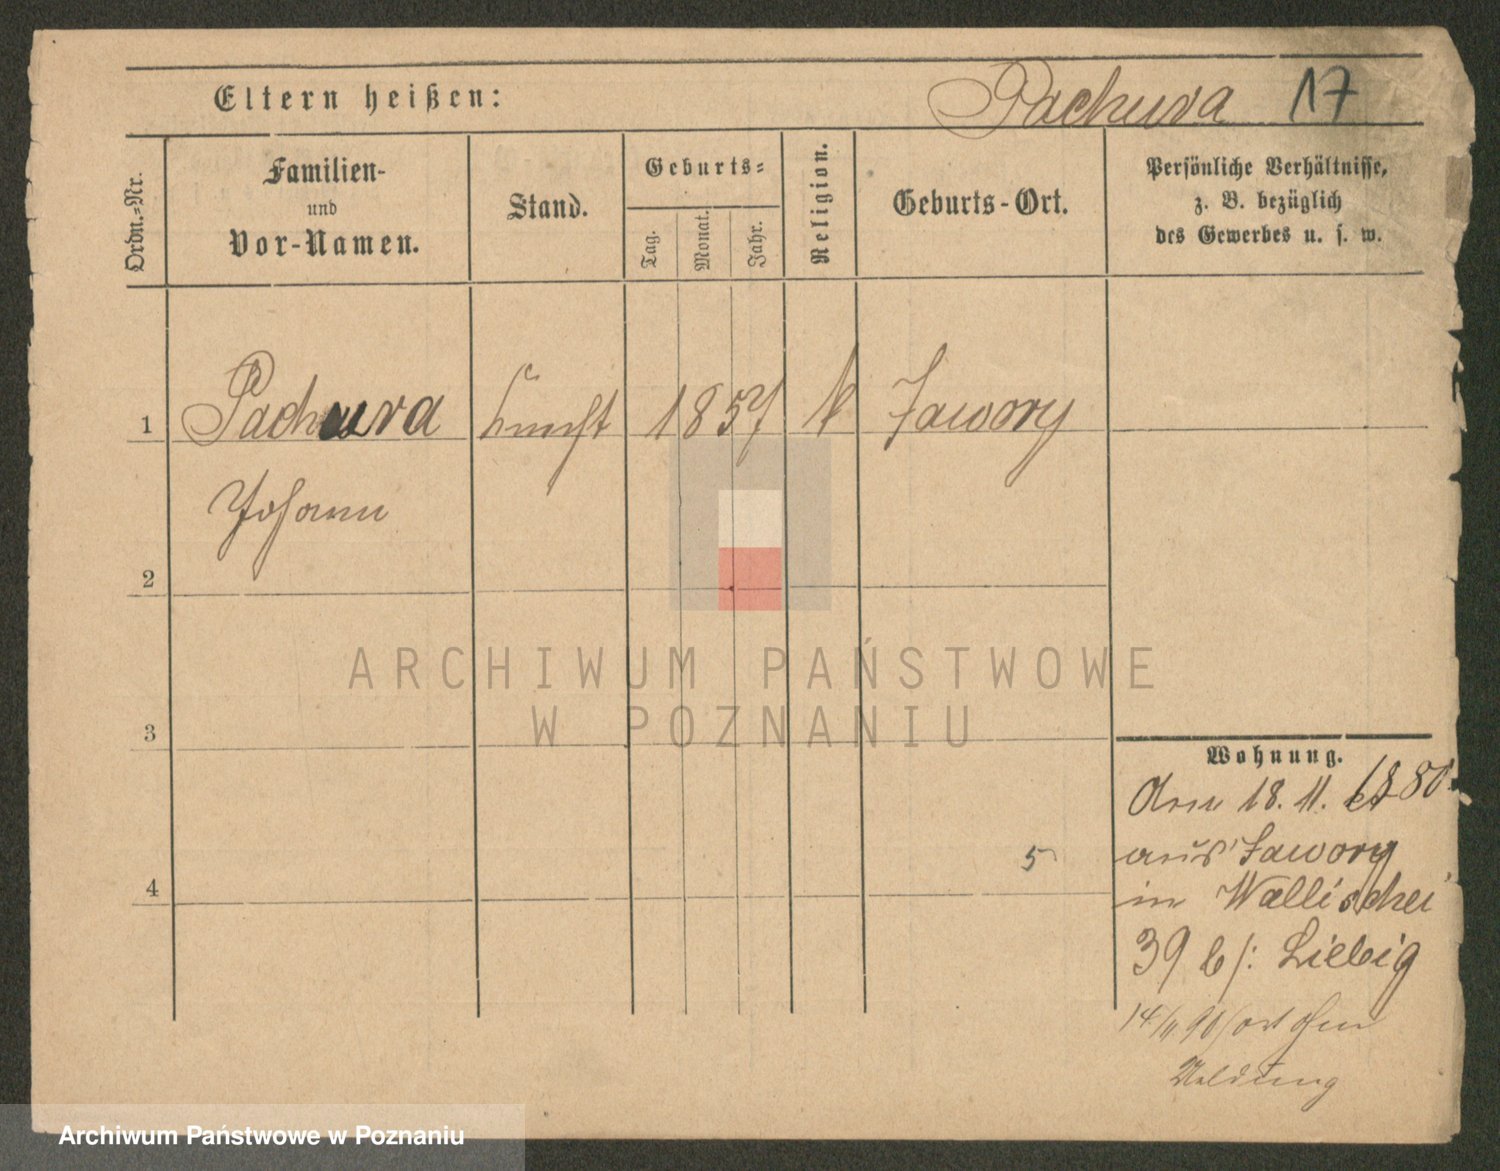 Eltern heißen:
Pachura 17
Ordn.-Nr.
Familien-
und
Vor-Namen.
Stand.
Geburts-
Tag.
Monat.
Jahr.
Religion.
Geburts-Ort.
Persönliche Verhältnisse,
z. B. bezüglich
des Gewerbes u. s. w.
1
Pachura
Knecht
1857
k
Jawory
Johann
2
3
4
5
Wohnung.
Den 18. 11. 1880
aus Jawory
in Wallischei
39 b/: Liebig
14/11 90 fort ohne
Meldung
ARCHIWUM PAŃSTWOWE
W POZNANIU
Archiwum Państwowe w Poznaniu